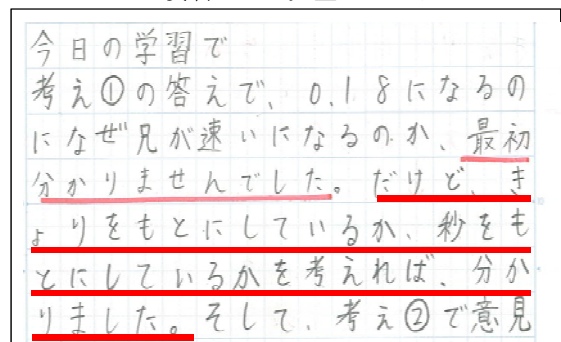 今日の学習で
考え①の答えで、0.18になるの
になぜ兄が速いになるのか、最初
分かりませんでした。だけど、き
ょりをもとにしているか、秒をも
とにしているかを考えれば、分か
りました。そして、考え②で意見